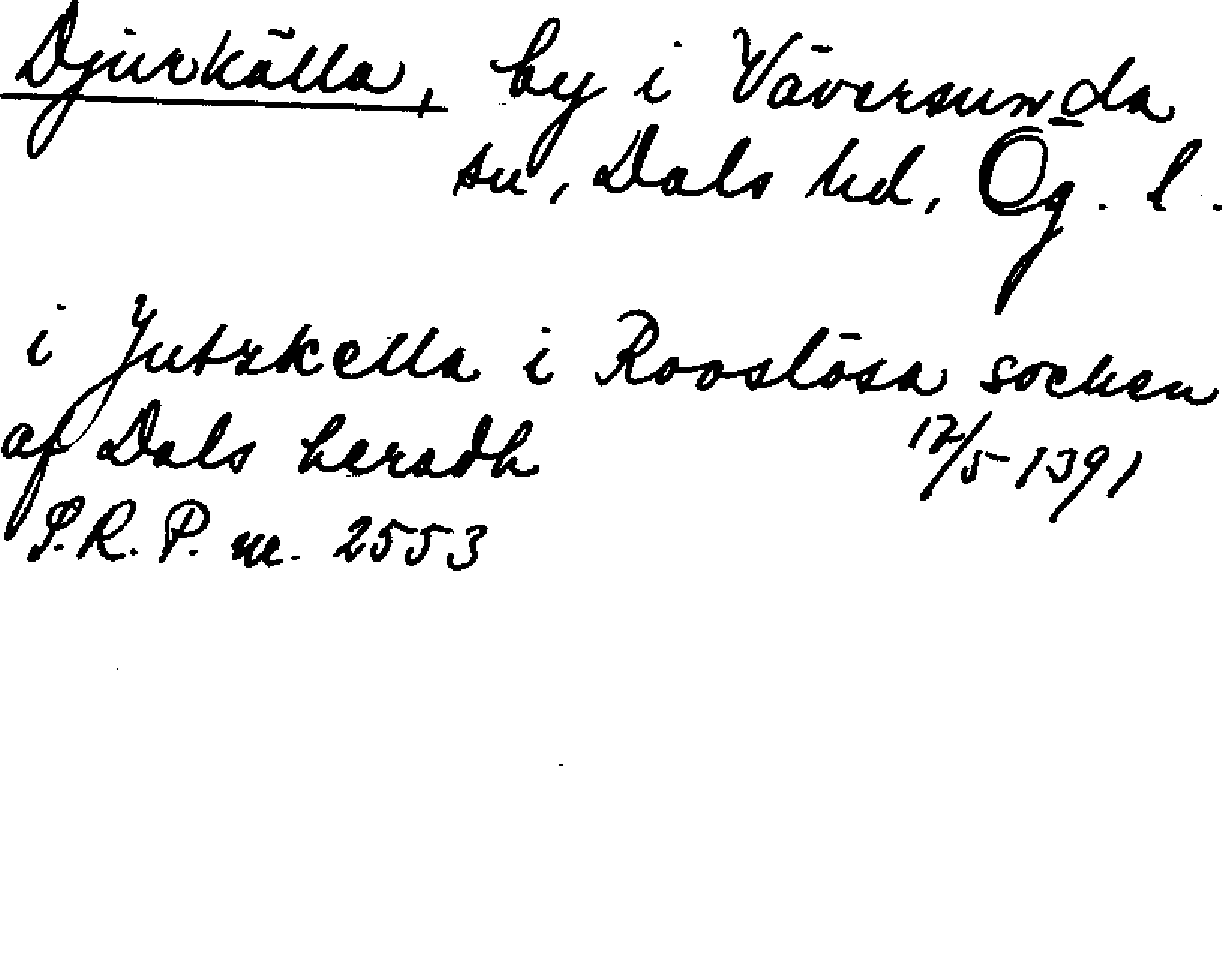 Djurkälla, by i Väversunda
sn, Dals hd, Ög. l.
i Jutzkella i Rooslösa socken
af Dals heradh 12/5 1391
S.R.P. nr. 2553